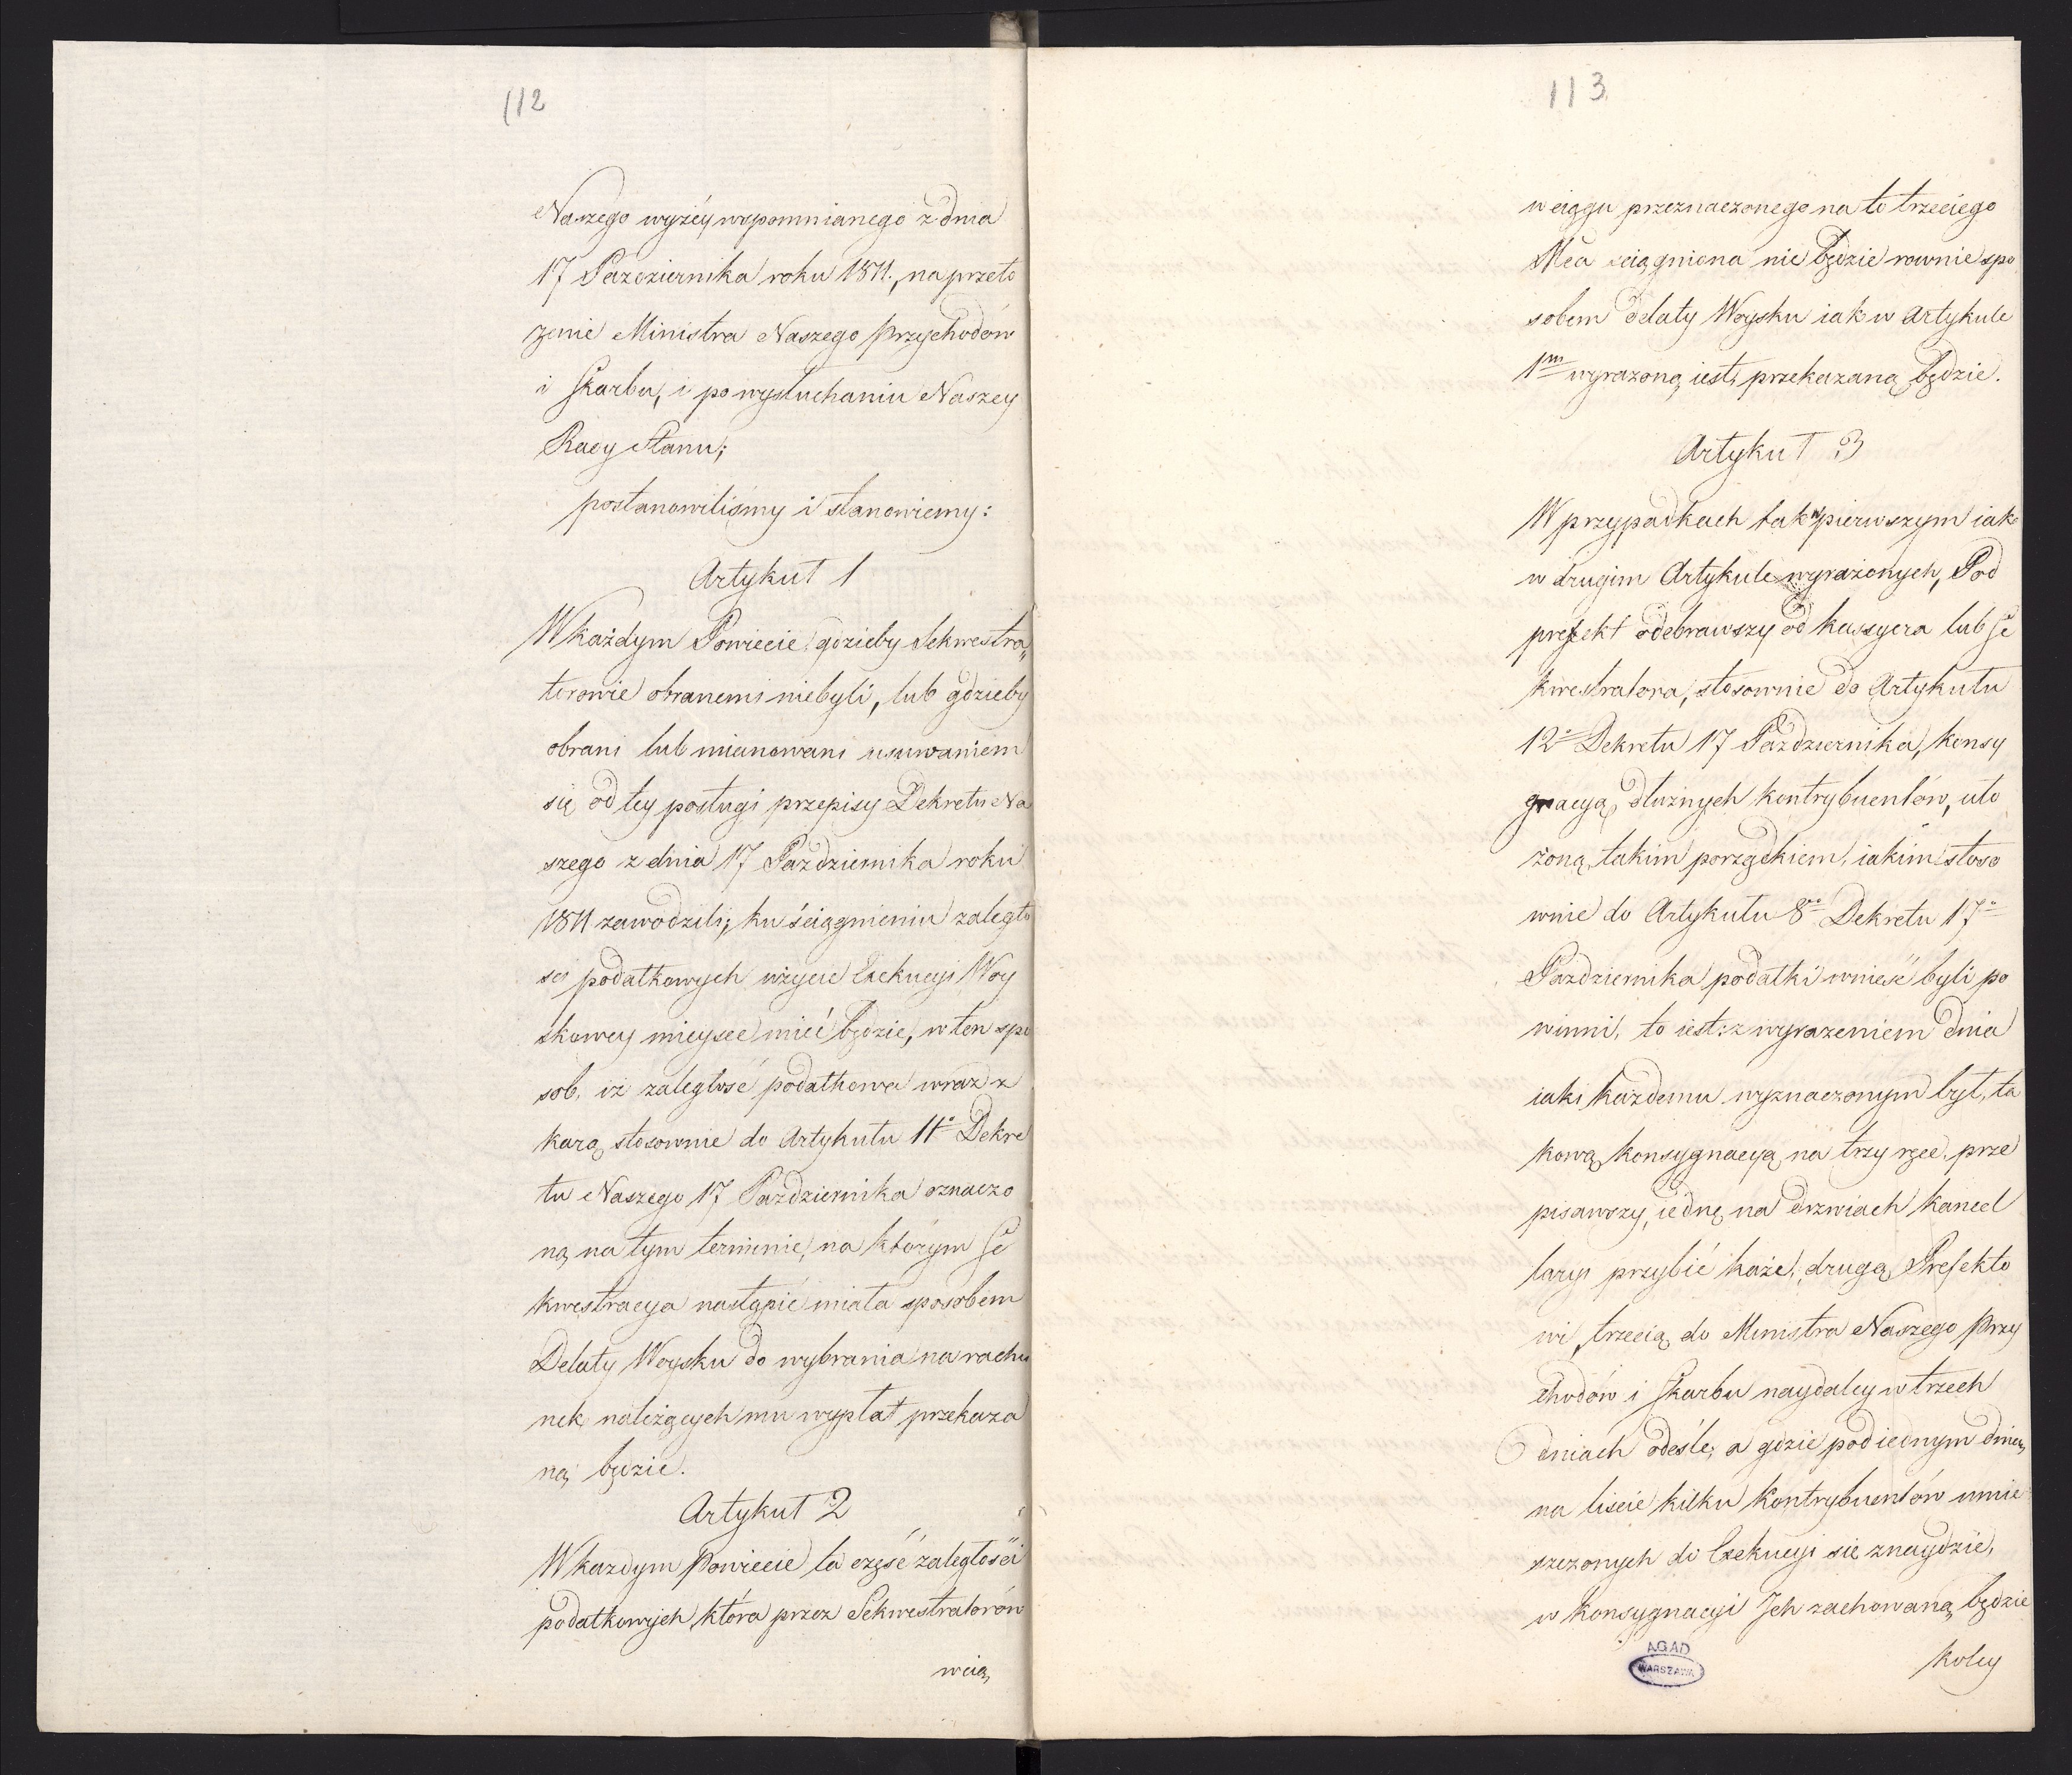 112
Naszego wyżéy wspomnianego z dnia
17 Pazdziernika roku 1811., na przeło
żenie Ministra Naszego Przychodów
i Skarbu, i po wysłuchaniu Naszey
Rady Stanu;
postanowiliśmy i stanowiemy:
Artykuł 1
W każdym Powiecie gdzieby Sekwestra„
torowie obranemi niebyli, lub gdzieby
obrani lub mianowani usuwaniem
się od tey posługi przepisy Dekretu Na
szego z dnia 17 Pazdziernika roku
1811 zawodzili; ku ściągnieniu zaległo
sci podatkowych użycie Exekucyi Woy
skowey mieysce mieć będzie, w ten spo
sob, iż zaległość podatkowa wraz z
karą stosownie do Artykułu 11º Dekre
tu Naszego 17 Pazdziernika oznaczo
ną na tym terminie, na którym Se
kwestracya nastąpić miała sposobem
Delaty Woysku do wybrania na rachu
nek należących mu wypłat przekaza
ną będzie.
Artykuł 2
W kazdym Powiecie ta część zaległości
podatkowych, która przez Sekwestratorów
wcią„
113
w ciągu przeznaczonego na to trzeciego
Mca sciągniona nie będzie rownie spo
sobem delaty Woysku iak w Artykule
1m wyrazoną iest, przekazaną będzie.
Artykuł 3
W przypadkach tak w pierwszym iako
w drugim Artykule wyrażonych, Pod
prefekt odebrawszy od kassyera lub Se
kwestratora, stosownie do Artykułu
12º Dekretu 17 Pazdziernika, konsy
gnacyą dłużnych kontrybuentów, uło
żoną takim porządkiem, iakim stoso
wnie do Artykułu 8º Dekretu 17º
Pazdziernika podatki wnieść byli po
winni, to iest: z wyrazeniem dnia
iaki każdemu wyznaczonym był, ta
kową konsygnacyą na trzy ręce prze
pisawszy, iednę na drzwiach kancel
laryi przybić każe, drugą Prefekto
wi, trzecią do Ministra Naszego Przy
chodów i Skarbu naydaley w trzech
dniach odeśle; a gdzie pod iednym dniem
na liscie kilku Kontrybuentów umie
szczonych do Exekucyi się znaydzie,
w konsygnacyi Jch zachowaną będzie
koley
AGAD
WARSZAWA